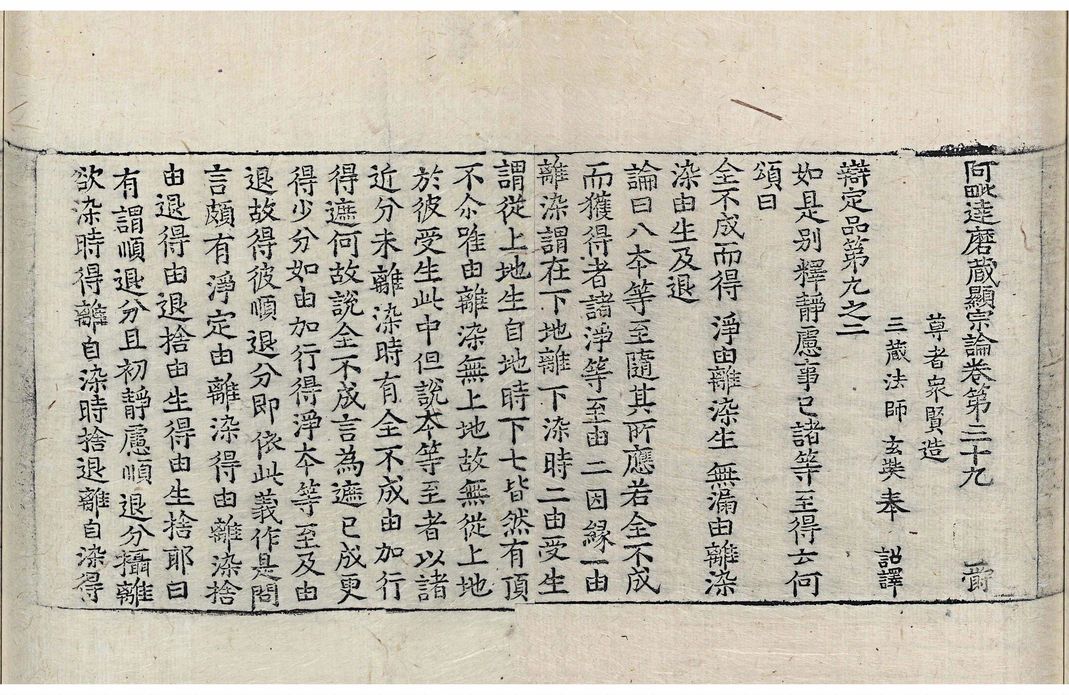 阿毗達磨藏顯宗論卷第三十九 爵
尊者衆賢造
三藏法師 玄奘奉 詔譯
辯定品第九之二
如是別釋靜慮事已諸等至得云何
頌曰
全不成而得 淨由離染生 無漏由離染
染由生及退
論曰八本等至隨其所應若全不成
而獲得者諸淨等至由二因緣一由
離染謂在下地離下染時二由受生
謂從上地生自地時下七皆然有頂
不尒唯由離染無上地故無從上地
於彼受生此中但說本等至者以諸
近分未離染時有全不成由加行
得遮何故說全不成言為遮已成更
得少分如由加行得淨本等至及由
退故得彼順退分即依此義作是問
言頗有淨定由離染得由離染捨
由退得由退捨由生得由生捨耶曰
有謂順退分且初靜慮順退分攝離
欲染時得離自染時捨退離自染得